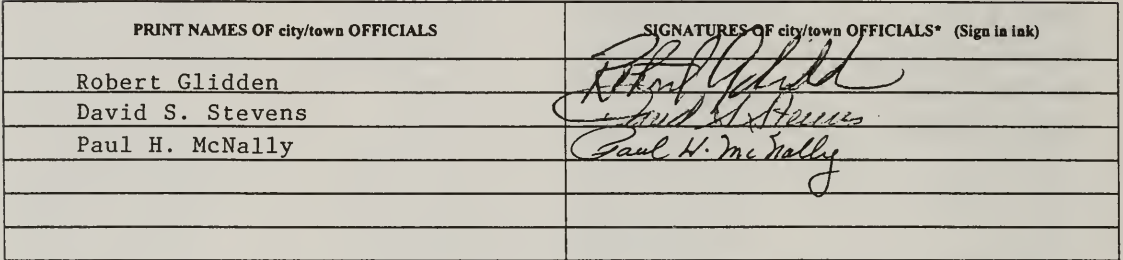 PRINT NAMES OF city/town OFFICIALS SIGNATURES OF city/town OFFICIALS* (Sign in ink)
Robert Glidden
David S. Stevens David S. Stevens
Paul H. McNally Paul H. McNally